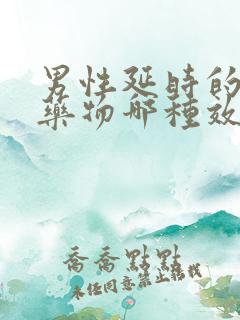 男性延時的
藥物哪種效
喬喬點點
未经同意禁止搬载